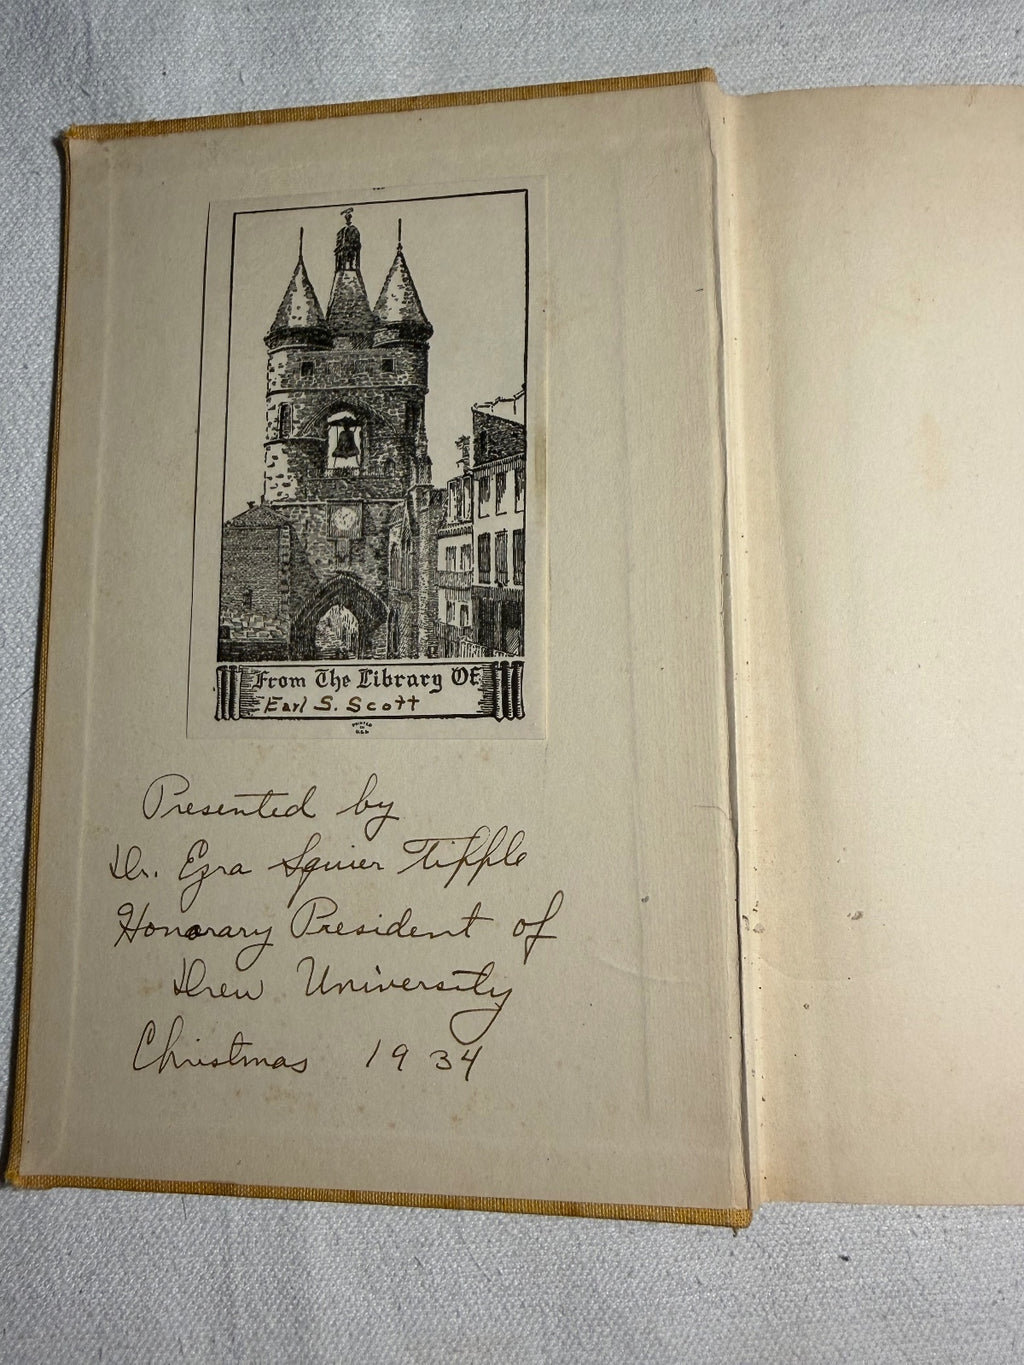 From The Library Of
Earl S. Scott
PRINTED
IN
U.S.A.
Presented by
Dr. Ezra Squier Tipple
Honorary President of
Drew University
Christmas 1934